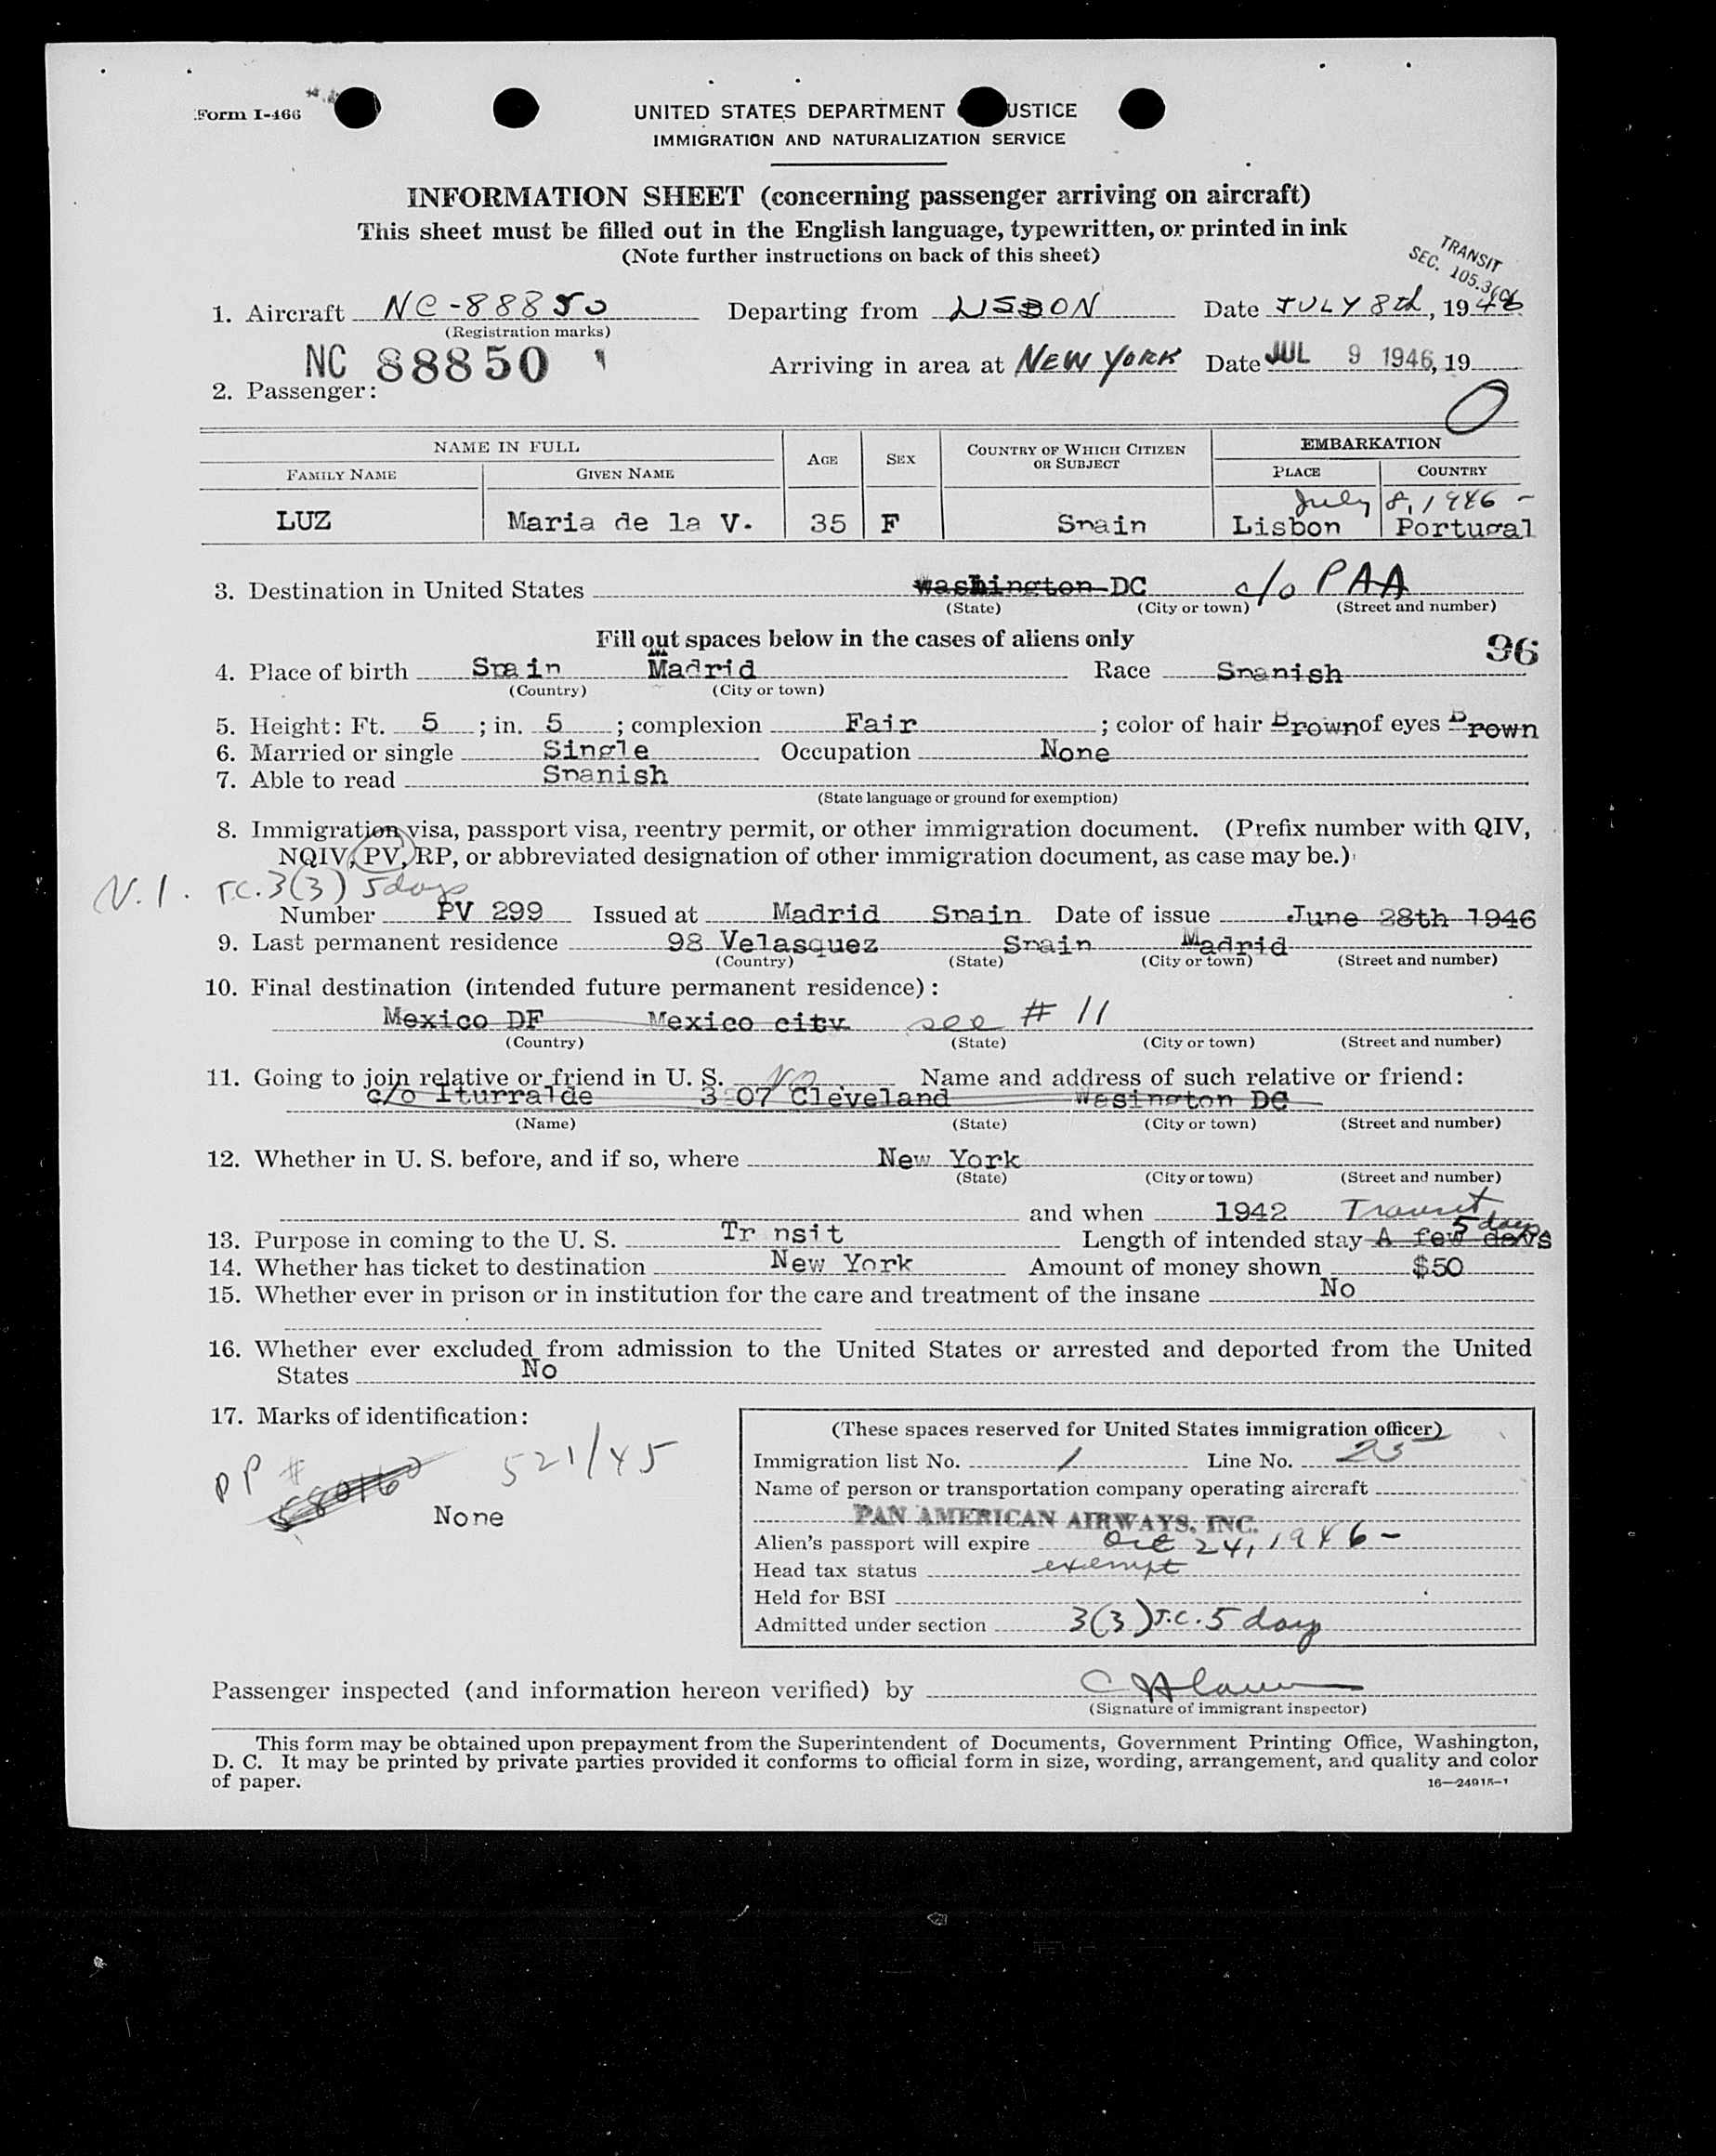 Form I-466
UNITED STATES DEPARTMENT USTICE
IMMIGRATION AND NATURALIZATION SERVICE
INFORMATION SHEET (concerning passenger arriving on aircraft)
This sheet must be filled out in the English language, typewritten, or printed in ink
(Note further instructions on back of this sheet)
TRANSIT
SEC. 105.3(c)
1. Aircraft NC-88850 Departing from LISBON Date JULY 8th, 1946
(Registration marks)
NC 88850 Arriving in area at NEW YORK Date JUL 9 1946, 19
2. Passenger:
0
NAME IN FULL AGE SEX COUNTRY OF WHICH CITIZEN OR SUBJECT EMBARKATION
FAMILY NAME GIVEN NAME PLACE COUNTRY
July 8, 1946 -
LUZ Maria de la V. 35 F Spain Lisbon Portugal
3. Destination in United States Washington DC c/o PAA
(State) (City or town) (Street and number)
Fill out spaces below in the cases of aliens only
96
4. Place of birth Spain Madrid Race Spanish
(Country) (City or town)
5. Height: Ft. 5; in. 5; complexion Fair; color of hair Brown of eyes Brown
6. Married or single Single Occupation None
7. Able to read Spanish
(State language or ground for exemption)
8. Immigration visa, passport visa, reentry permit, or other immigration document. (Prefix number with QIV,
NQIV, PV, RP, or abbreviated designation of other immigration document, as case may be.)
N.I. T.C. 3(3) 5 days
Number PV 299 Issued at Madrid Spain Date of issue June 28th 1946
9. Last permanent residence 98 Velasquez Spain Madrid
(Country) (State) (City or town) (Street and number)
10. Final destination (intended future permanent residence):
Mexico DF Mexico city see # 11
(Country) (State) (City or town) (Street and number)
11. Going to join relative or friend in U. S. NO Name and address of such relative or friend:
c/o Iturralde 3 07 Cleveland Wasington DC
(Name) (State) (City or town) (Street and number)
12. Whether in U. S. before, and if so, where New York
(State) (City or town) (Street and number)
and when 1942 Transit
5 days
13. Purpose in coming to the U. S. Tr nsit Length of intended stay A few days
14. Whether has ticket to destination New York Amount of money shown $50
15. Whether ever in prison or in institution for the care and treatment of the insane No
16. Whether ever excluded from admission to the United States or arrested and deported from the United
States No
17. Marks of identification:
PP # 58016 521/45
None
(These spaces reserved for United States immigration officer)
Immigration list No. 1 Line No. 23
Name of person or transportation company operating aircraft
PAN AMERICAN AIRWAYS, INC.
Alien's passport will expire Oct 24, 1946 -
Head tax status exempt
Held for BSI
Admitted under section 3(3) T.C. 5 days
Passenger inspected (and information hereon verified) by
(Signature of immigrant inspector)
This form may be obtained upon prepayment from the Superintendent of Documents, Government Printing Office, Washington,
D. C. It may be printed by private parties provided it conforms to official form in size, wording, arrangement, and quality and color
of paper.
16—24915-1